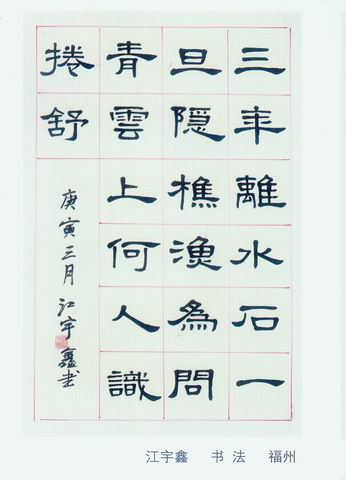 三年離水石一
旦隱樵漁為問
青雲上何人識
捲舒
庚寅三月江宇鑫書
江宇鑫 书法 福州